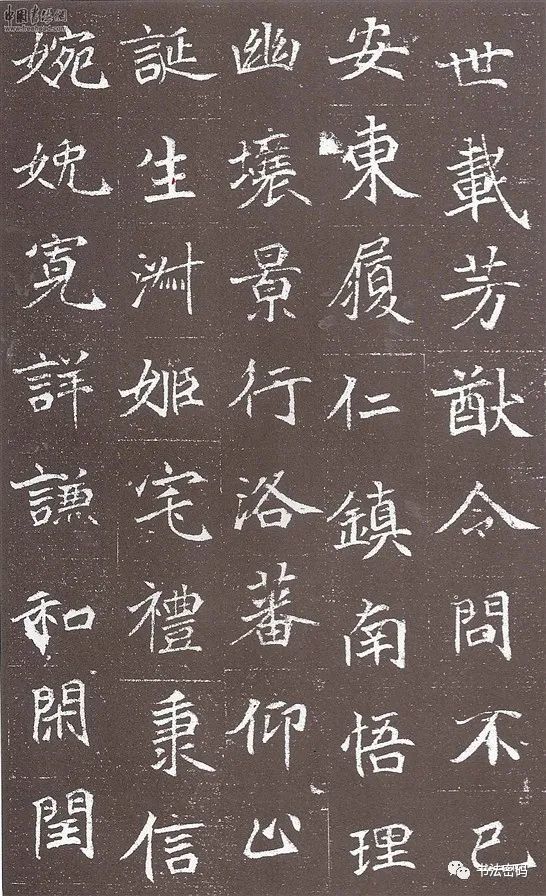 世載芳猷令問不已
安東履仁鎮南悟理
幽壤景行洛蕃仰止
誕生淑姬宅禮秉信
婉娩寬詳謙和閑閏
中国书法网
书法密码